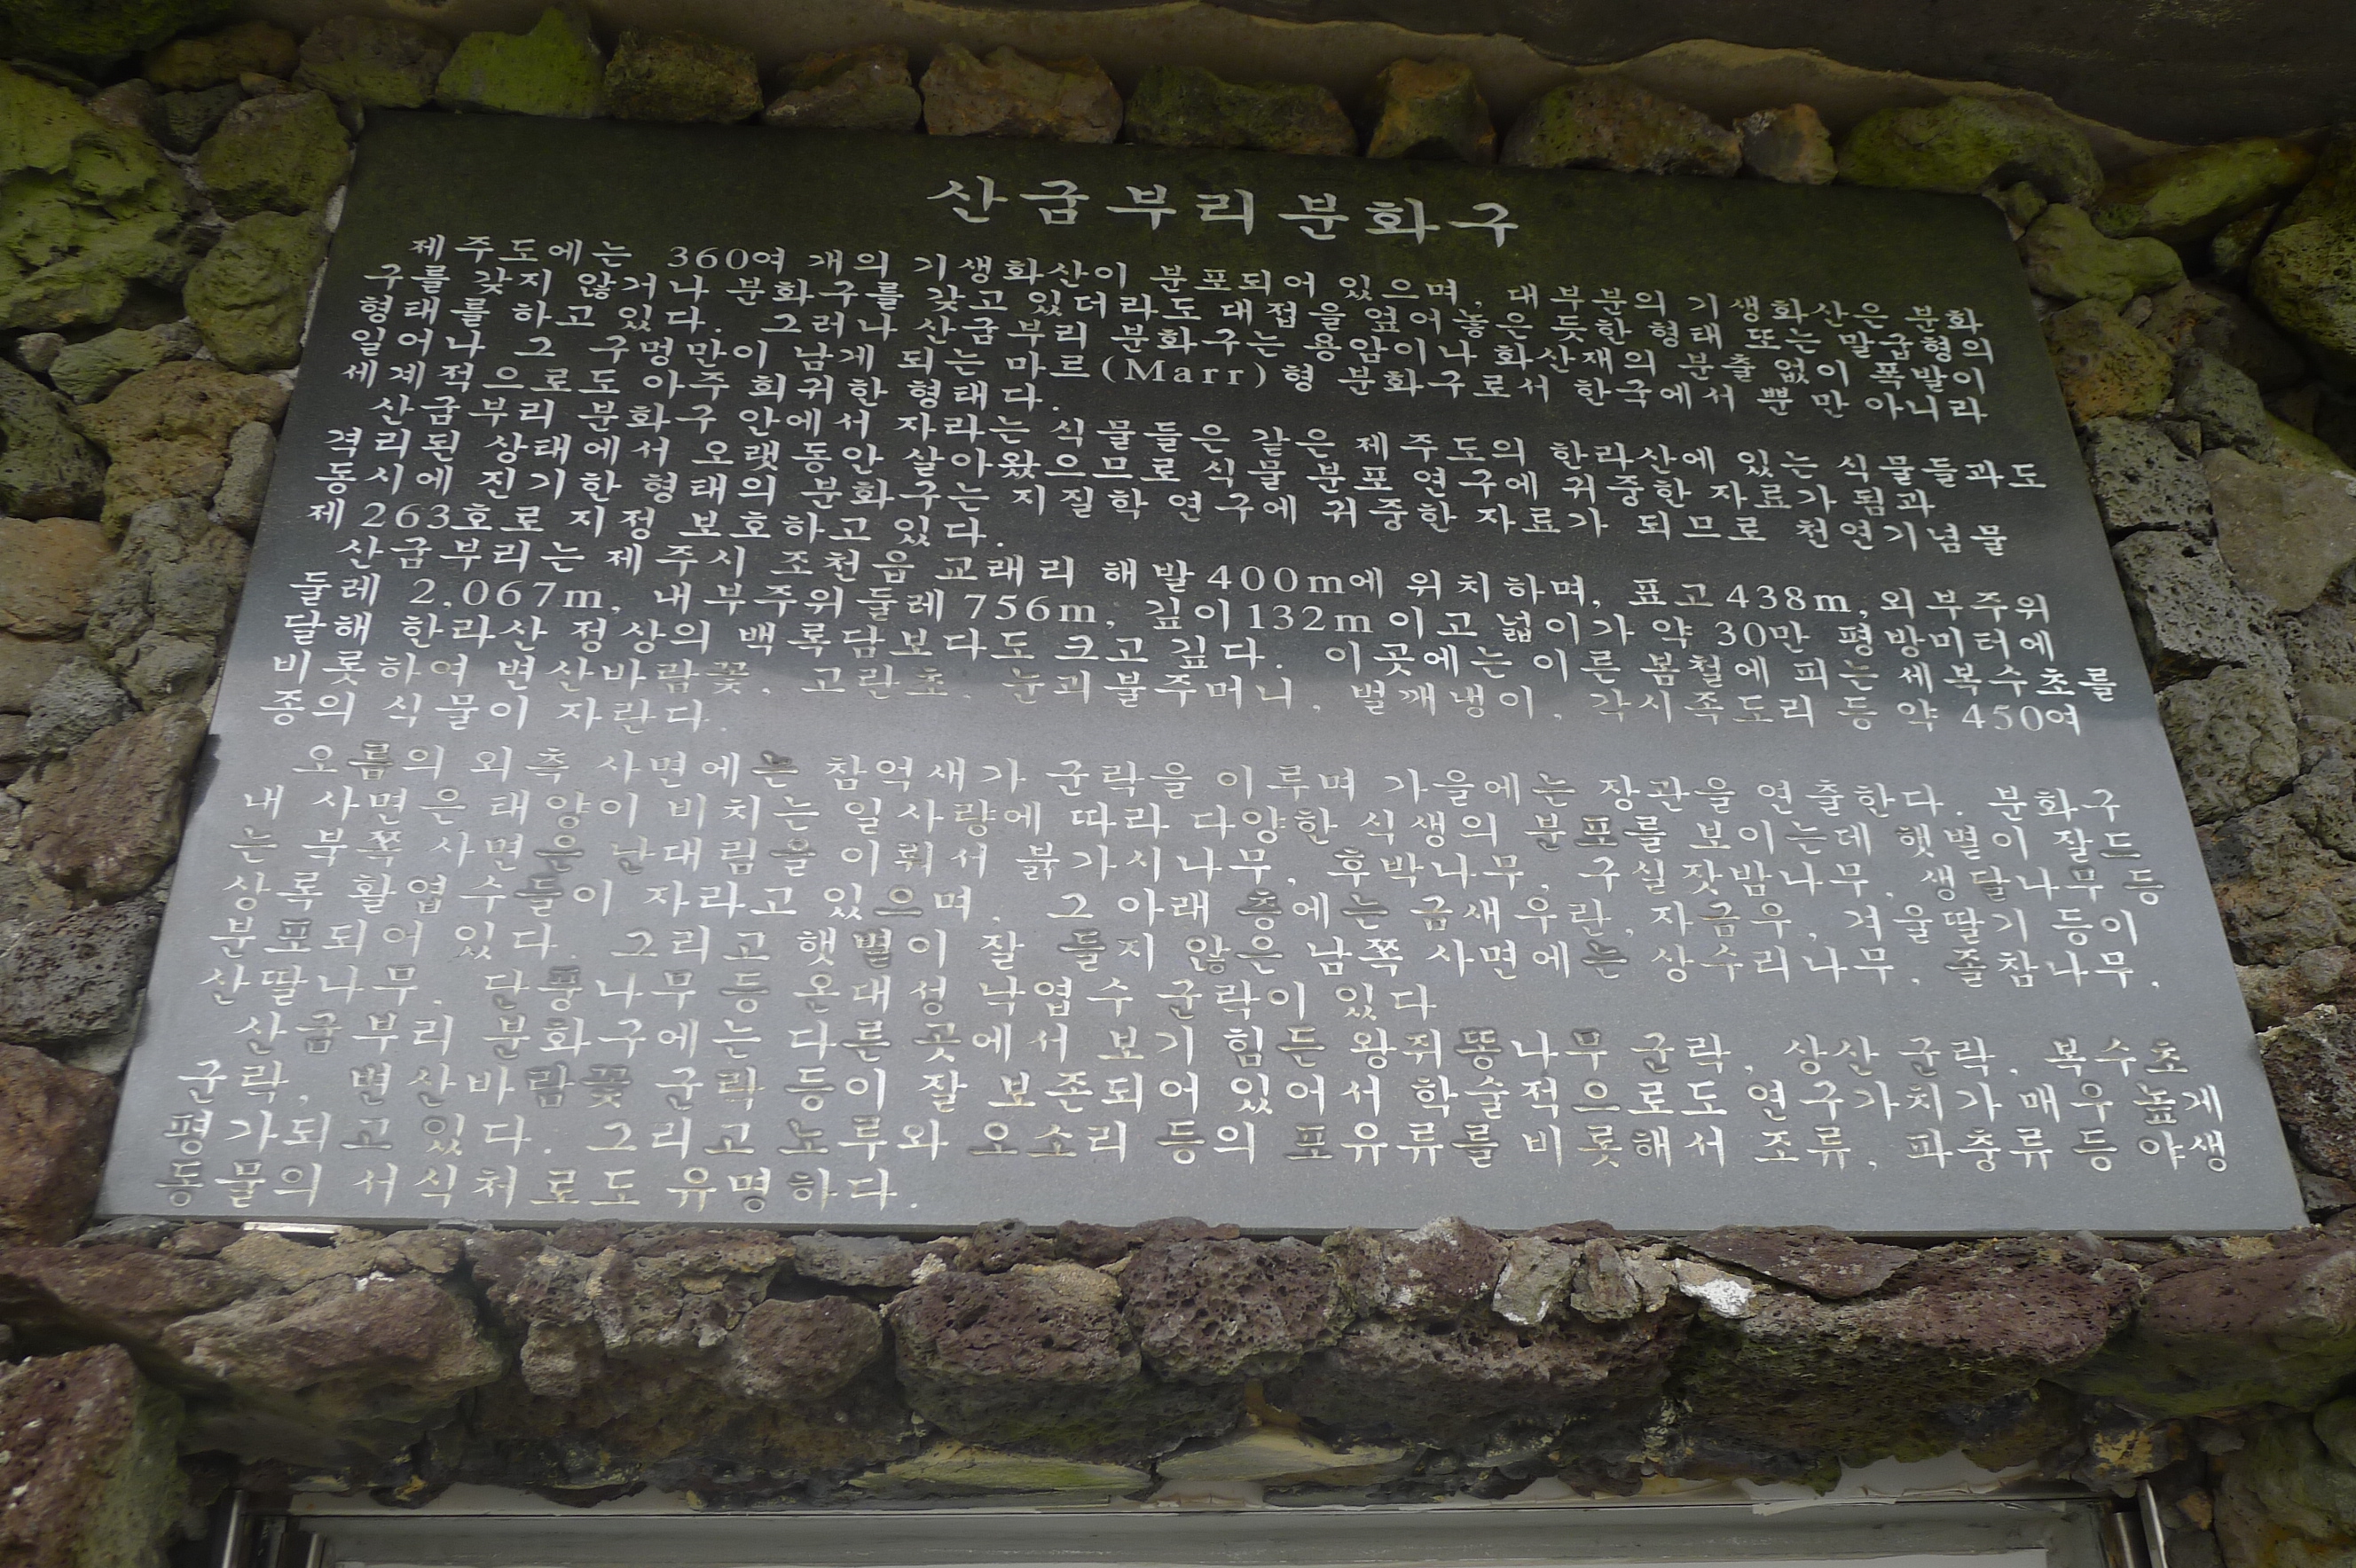 산굼부리분화구
제주도에는 360여 개의 기생화산이 분포되어 있으며, 대부분의 기생화산은 분화
구를 갖지 않거나 분화구를 갖고 있더라도 대접을 엎어놓은 듯한 형태 또는 말굽형의
형태를 하고 있다. 그러나 산굼부리 분화구는 용암이나 화산재의 분출 없이 폭발이
일어나 그 구멍만이 남게 되는 마르(Marr)형 분화구로서 한국에서 뿐만 아니라
세계적으로도 아주 희귀한 형태다.
산굼부리 분화구 안에서 자라는 식물들은 같은 제주도의 한라산에 있는 식물들과도
격리된 상태에서 오랫동안 살아왔으므로 식물 분포 연구에 귀중한 자료가 됨과
동시에 진기한 형태의 분화구는 지질학 연구에 귀중한 자료가 되므로 천연기념물
제263호로 지정 보호하고 있다.
산굼부리는 제주시 조천읍 교래리 해발400m에 위치하며, 표고438m,외부주위
둘레 2,067m, 내부주위둘레756m, 깊이132m이고 넓이가 약 30만 평방미터에
달해 한라산 정상의 백록담보다도 크고 깊다. 이곳에는 이른 봄철에 피는 세복수초를
비롯하여 변산바람꽃, 고란초, 눈괴불주머니, 벌깨냉이, 각시족도리 등 약 450여
종의 식물이 자란다.
오름의 외측 사면에는 참억새가 군락을 이루며 가을에는 장관을 연출한다. 분화구
내 사면은 태양이 비치는 일사량에 따라 다양한 식생의 분포를 보이는데 햇볕이 잘드
는 북쪽 사면은 난대림을 이뤄서 붉가시나무, 후박나무, 구실잣밤나무, 생달나무 등
상록 활엽수들이 자라고 있으며, 그 아래 층에는 금새우란, 자금우, 겨울딸기 등이
분포되어 있다. 그리고 햇볕이 잘 들지 않은 남쪽 사면에는 상수리나무, 졸참나무,
산딸나무, 단풍나무 등 온대성 낙엽수 군락이 있다
산굼부리 분화구에는 다른 곳에서 보기 힘든 왕쥐똥나무 군락, 상산 군락, 복수초
군락, 변산바람꽃 군락 등이 잘 보존되어 있어서 학술적으로도 연구가치가 매우 높게
평가되고 있다. 그리고 노루와 오소리 등의 포유류를 비롯해서 조류, 파충류 등 야생
동물의 서식처로도 유명하다.